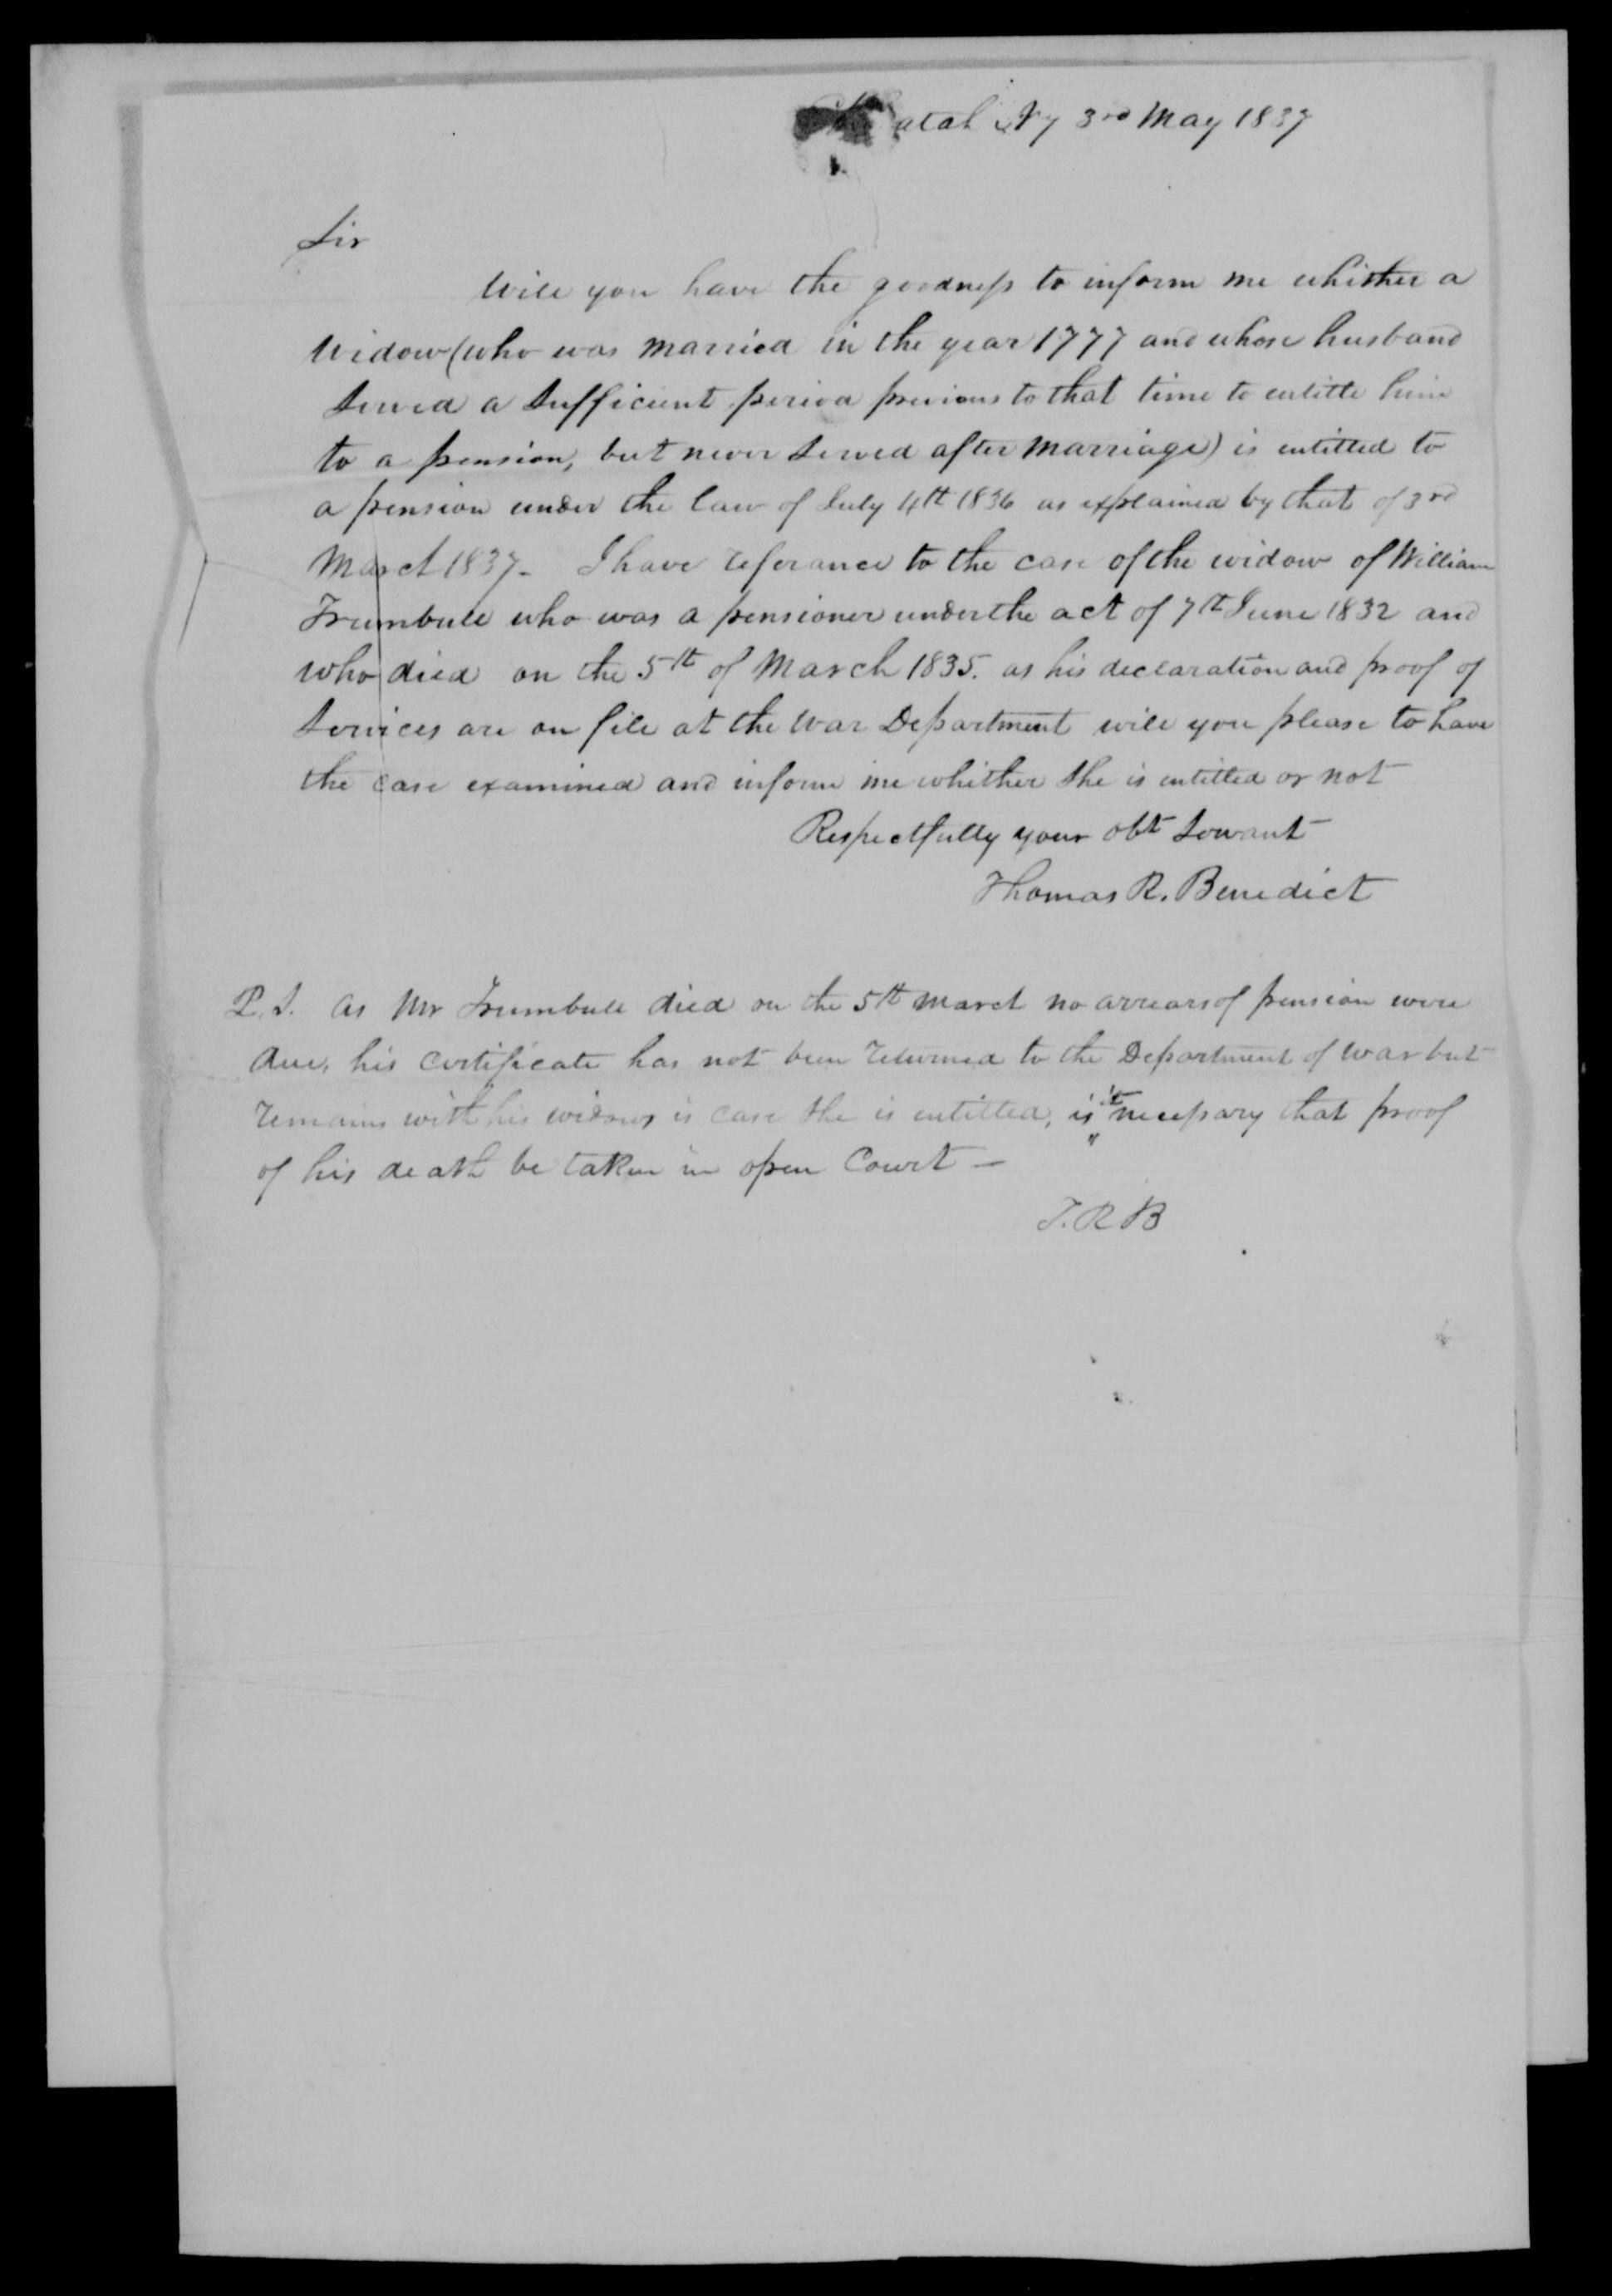 Ny 3rd May 1837
Sir
Will you have the goodness to inform me whither a
Widow (who was married in the year 1777 and whose husband
Served a Sufficient period previous to that time to entitle him
to a pension, but never Served after marriage) is entitled to
a pension under the law of July 4th 1836 as explained by that of 3rd
March 1837 - I have referance to the case of the widow of William
Trumbull who was a pensioner under the act of 7th June 1832 and
who died on the 5th of March 1835. as his declaration and proof of
Services are on file at the War Department will you please to have
the case examined and inform me whither She is entitled or not
Respectfully your obt Servant
Thomas R. Benedict
P.S. As Mr Trumbull died on the 5th March no arrears of pension were
due, his certificate has not been returned to the Department of War but
remains with his widow, is case She is entitled, is it necessary that proof
of his death be taken in open Court -
T. R B